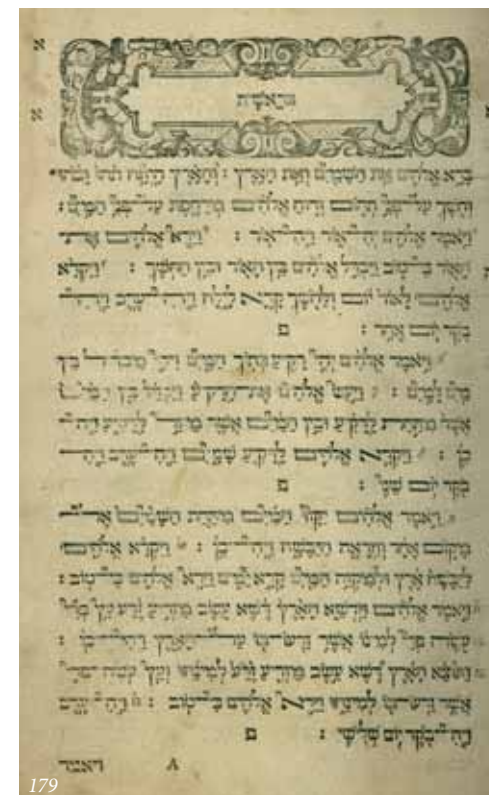 בראשית
ברא אלהים את השמים ואת הארץ : והארץ היתה תהו ובהו
וחשך על־פני תהום ורוח אלהים מרחפת על־פני המים :
ויאמר אלהים יהי־אור ויהי־אור : וירא אלהים את־
האור כי־טוב ויבדל אלהים בין האור ובין החשך : ויקרא
אלהים לאור יום ולחשך קרא לילה ויהי־ערב ויהי־
בקר יום אחד : פ
ויאמר אלהים יהי רקיע בתוך המים ויהי מבדיל בין
מים למים : ויעש אלהים את־הרקיע ויבדל בין המים
אשר מתחת לרקיע ובין המים אשר מעל לרקיע ויהי־
כן : ויקרא אלהים לרקיע שמים ויהי־ערב ויהי־
בקר יום שני : פ
ויאמר אלהים יקוו המים מתחת השמים אל־
מקום אחד ותראה היבשה ויהי־כן : ויקרא אלהים
ליבשה ארץ ולמקוה המים קרא ימים וירא אלהים כי־טוב :
ויאמר אלהים תדשא הארץ דשא עשב מזריע זרע עץ פרי
עשה פרי למינו אשר זרעו־בו על־הארץ ויהי־כן :
ותוצא הארץ דשא עשב מזריע זרע למינהו ועץ עשה־פרי
אשר זרעו־בו למינהו וירא אלהים כי־טוב : ויהי־ערב
ויהי־בקר יום שלישי : פ
A ויאמר
179